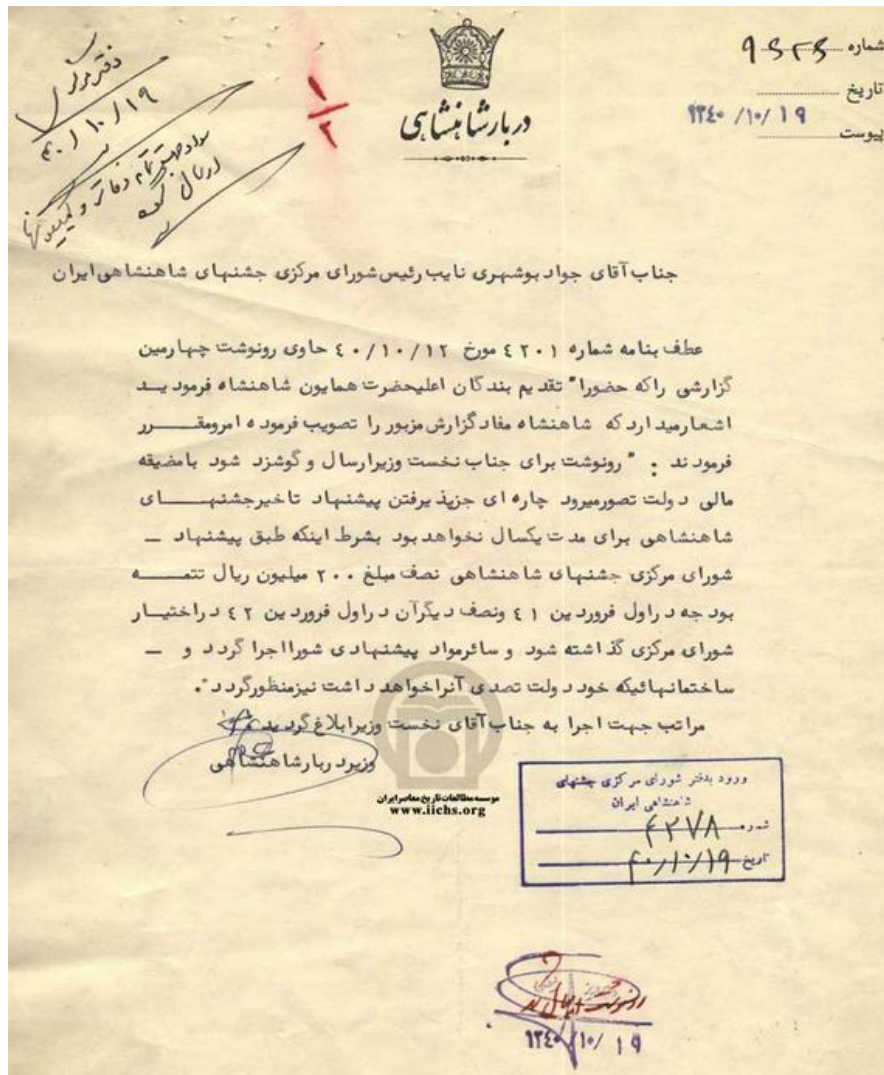 شماره
تاریخ ۱۳۴۰/۱۰/۱۹
پیوست
دربار شاهنشاهی
۱
۲
۴۰/۱۰/۱۹
جناب آقای جواد بوشهری نایب رئیس شورای مرکزی جشنهای شاهنشاهی ایران
عطف بنامه شماره ۴۲۰۱ مورخ ۴۰/۱۰/۱۲ حاوی رونوشت چهارمین
گزارشی راکه حضورا" تقدیم بندگان اعلیحضرت همایون شاهنشاه فرمودیــد
اشعارمیدارد که شاهنشاه مفاد گزارش مزبور را تصویب فرموده امرومقــــرر
فرمودند : "رونوشت برای جناب نخست وزیرارسال و گوشزد شود بامضیقه
مالی دولت تصورمیرود چاره ای جزپذیرفتن پیشنهاد تاخیرجشنهـــــای
شاهنشاهی برای مدت یکسال نخواهد بود بشرط اینکه طبق پیشنهاد ــ
شورای مرکزی جشنهای شاهنشاهی نصف مبلغ ۲۰۰ میلیون ریال تتمــــه
بودجه دراول فروردین ۴۱ ونصف دیگرآن دراول فروردین ۴۲ دراختیــار
شورای مرکزی گذاشته شود و سائرمواد پیشنهادی شورااجرا گردد و ــ
ساختمانهائیکه خود دولت تصدی آنراخواهد داشت نیزمنظورگردد".
مراتب جهت اجرا به جناب آقای نخست وزیرابلاغ گردید
وزیردربارشاهنشاهی
موسسه مطالعات تاریخ معاصر ایران
www.iichs.org
ورود بدفتر شورای مرکزی جشنهای
شاهنشاهی ایران
شماره ۴۲۷۸
تاریخ ۴۰/۱۰/۱۹
۱۳۴۰/۱۰/۱۹